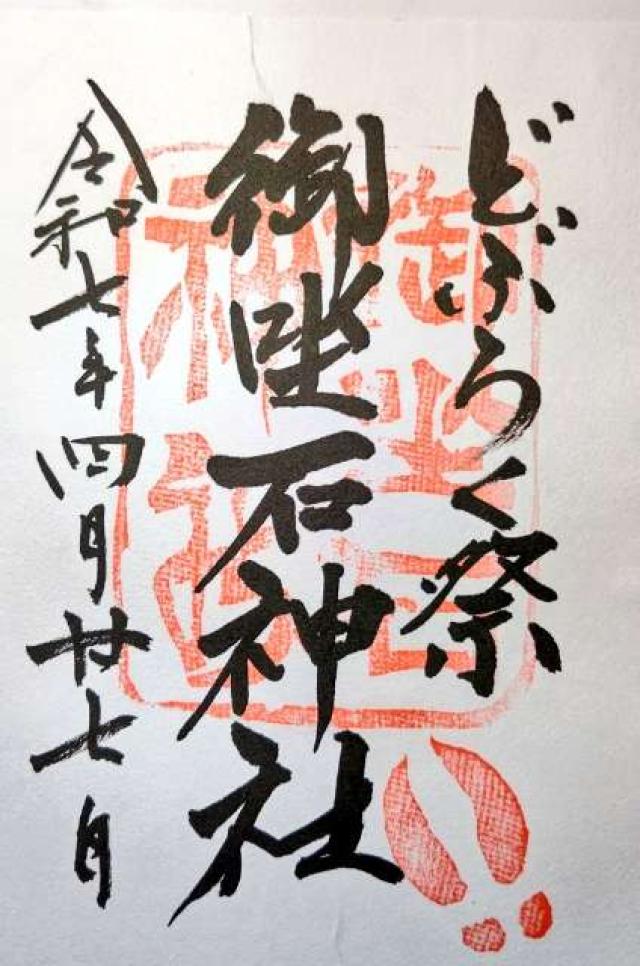 どぶろく祭
御座石神社
令和七年四月廿七日